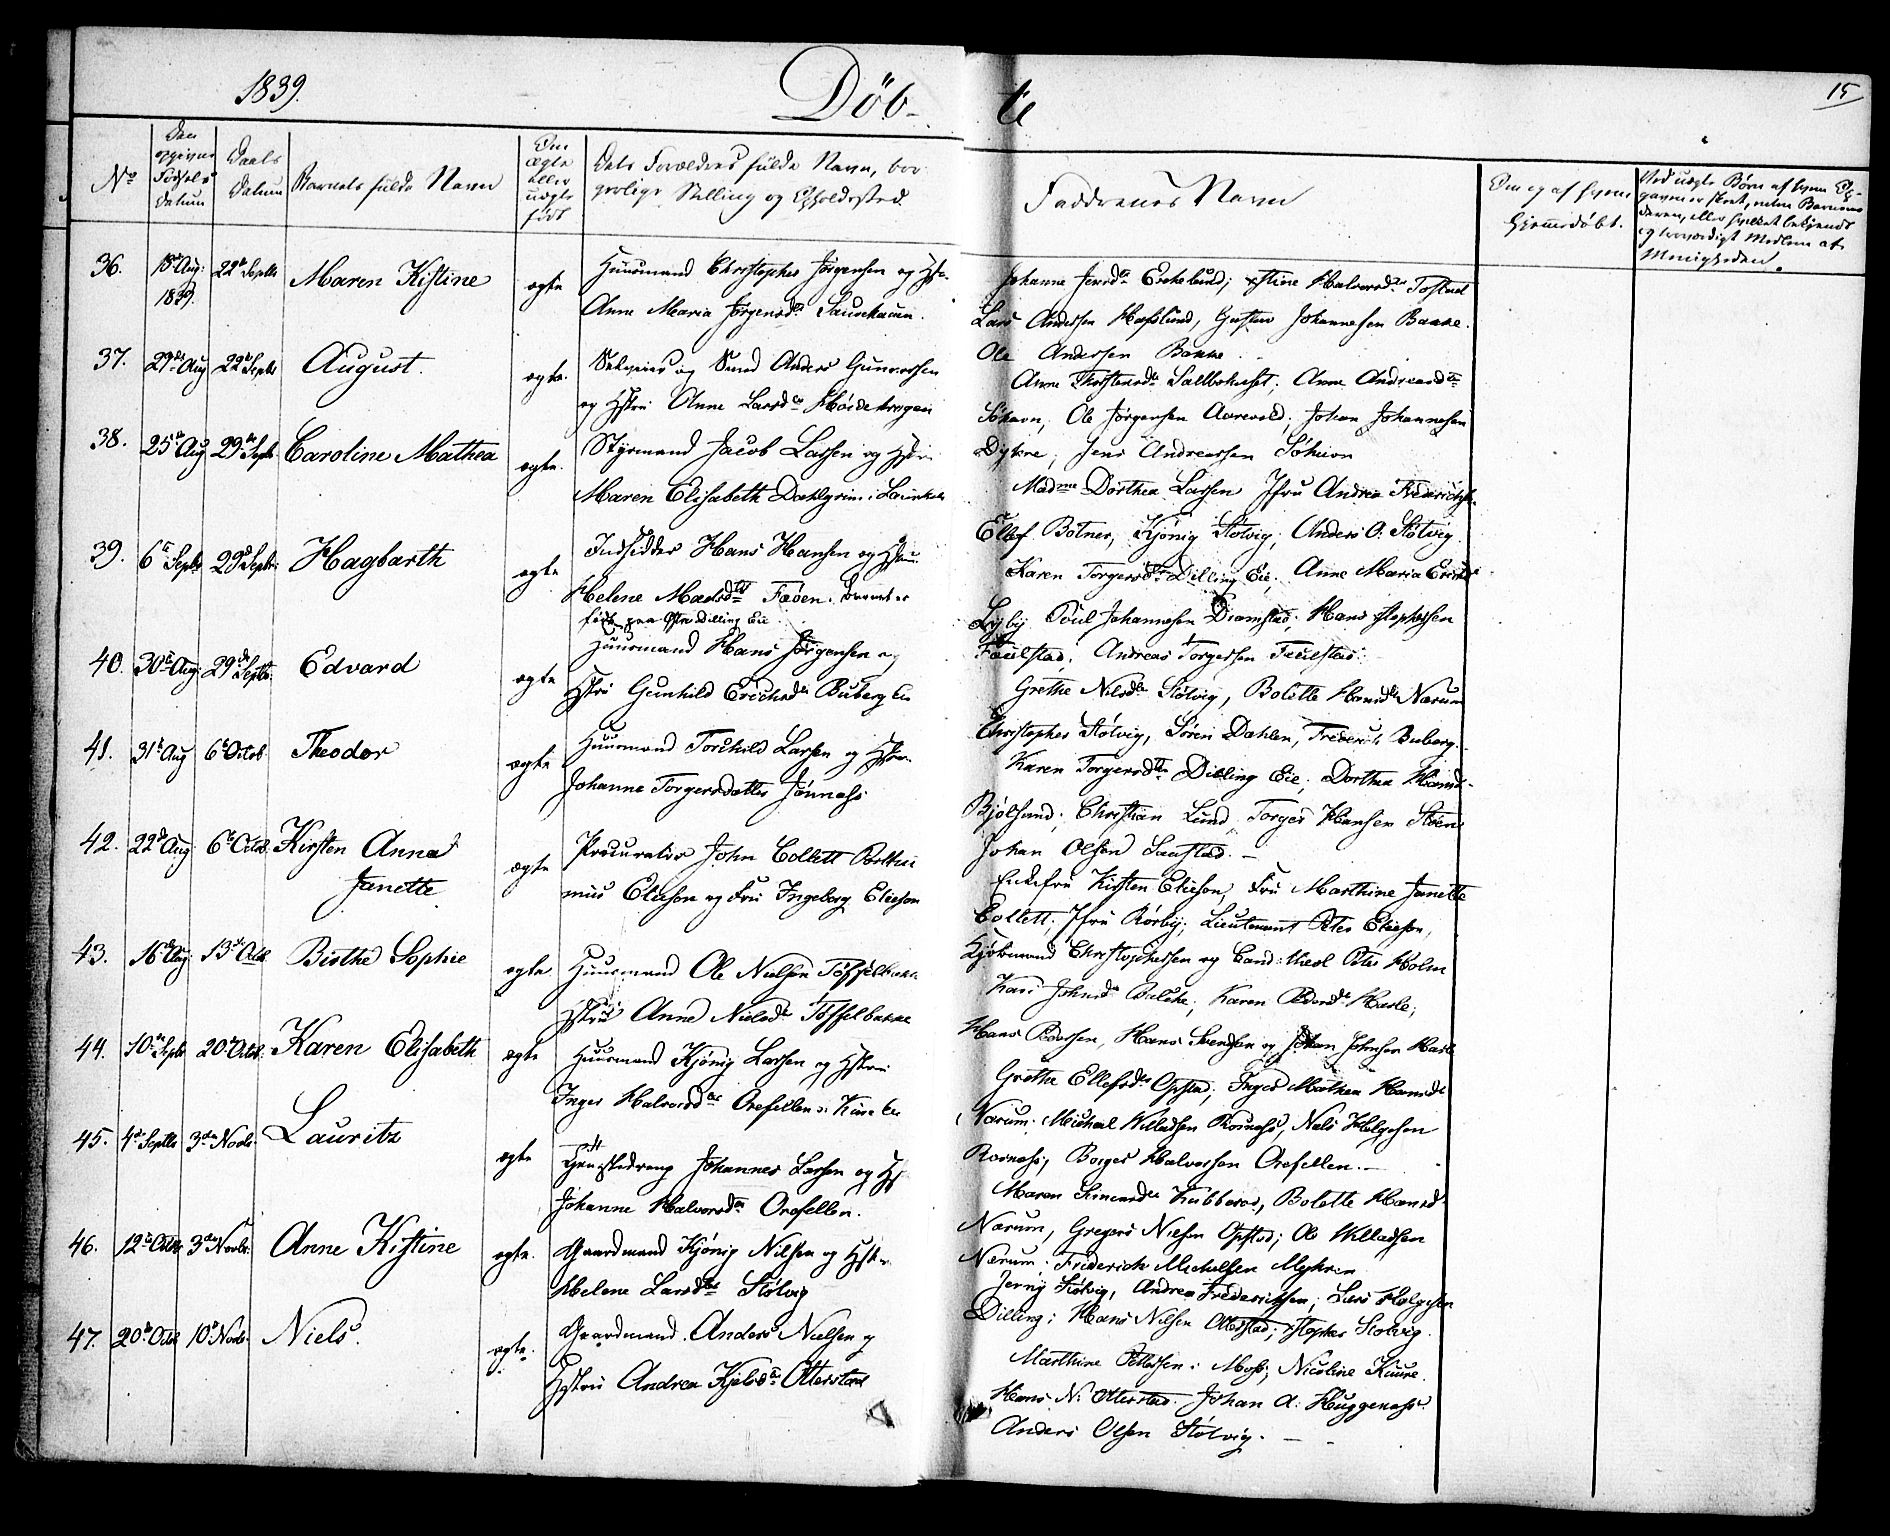 1839.
Döb- te
15
No
Den opgivne Fødsels Datum
Daabs Datum
Barnets fulde Navn
Om ægte eller uægte født
Dets Forældres fulde Navn, borgerlige Stilling og Opholdssted
Faddrenes Navn
Om og af hvem hjemmedøbt.
36. 18de Aug: 1839. 22de Septb Maren Kistine ægte Huusmand Christopher Jørgensen og Hstr
Anne Maria Jørgensdtr
Johanne Jensdtr Eskelund; Stine Halvorsdtr Tofted
Lars Andersen Hafslund, Gustav Johannesen Bakke.
Ole Andersen Bakke.
37. 29de Aug 22de Septb August. ægte. Selveier og Smed Anders Gunnersen
og Hstru Anne Larsdtr
Anne Thostensdtr Saltbohuset; Anne Andreasdtr
Søhavn, Ole Jørgensen Aarevold, Johan Johannesen
Dykere; Jens Andreassen Søhavn
38. 25de Aug 29de Septb Caroline Mathea ægte. Styrmand Jacob Larsen og Hstru
Maren Elisabeth Dahlgrim i Laurkule
Madme Dorthea Larsen Jfru Andrea Frederichs
Ellef Botner, Kjönig Stølvig, Anders O. Stølvig.
39. 6te Septb 29de Septb: Hagbarth ægte Indsidder Hans Hansen og Hstru
Helene Madsdtr Faøen. Barnet er
født paa Østre Dilling Eie
Karen Torgersdtr Dilling Eie, Anne Maria Erichs
Lyby Poul Johannesen Dramstad, Hans Stophersen
Fuulstad, Andreas Torgersen Fuulstad.
40. 30te Aug: 29de Septb Edvard ægte Huusmand Hans Jørgensen og
Hstru Gunhild Erichsdtr Buberg Eie
Grethe Nilsdtr Stølvig, Bolette Hansdtr Nærum
Christopher Stølvig, Sören Dahlen, Frederik Buberg.
41. 31te Aug 6te Octob Theodor ægte Huusmand Torchild Larsen og Hstru
Johanne Torgersdatter Jönnass
Karen Torgersdtr Dilling Eie, Dorthea Hansd.
Bjölsund; Christian Lund, Torger Hansen Støen
Johan Olsen Saustad. —
42. 22de Aug 6te Octob. Kirsten Anna Janette ægte Procurator John Collett Barthu
mius Elieson og Fru Ingeborg Elieson
Enkefru Kirsten Elieson, Fru Marthine Janette
Collett, Jfru Rörby; Lieutenant Peter Elieson,
Kjöbmand Christophersen og Cand: Med Peter Holm
43. 16de Aug 13de Octb Birthe Sophie ægte Huusmand Ole Nielsen Töffelbakke
Hstru Anne Nielsdtr Töffelbakke
Kari Johnsdtr Balche, Karen Pedersdtr Hasle;
Hans Pedersen, Hans Svendsen og Johan Johnsen Hasle
44. 10de Septb 20de Octob. Karen Elisabeth ægte Huusmand Kjönig Larsen og Hstru
Inger Halvorsdtr Orefellen
Grethe Ellefsdtr Opstad; Inger Mathea Hansdtr
Nærum. Michael Willadsen Rornæss, Niels Helgesen
Rornæss; Borger Halvorsen Orefellen.—
45. 4de Septb 3de Novb. Lauritz ægte Tjenestedreng Johannes Larsen og Hst
Johanne Halvorsdtr Orefellen.
Maren Simensdtr Kubberød, Bolette Hansd
Nærum, Gregers Nielsen Opstad; Ole Willadsen
Nærum. Friderich Michelsen Myhren
46. 12te Octb 3de Novbr. Anne Kistine ægte. Gaardmand Kjönig Nilsen og Hstru
Helene Larsdtr Stølvig
Jenny Stølvig, Andrea Frederichsen; Lars Helgesen
Dilling; Hans Nilsen Otterstad; Stopher Stølvig.
47. 20de Octb 10de Novb. Niels. ægte. Gaardmand Anders Nielsen og
Hstru Andrea Kjelsdtr Otterstad
Marthine Pettersen i Moss; Nicoline Kuure.
Hans N: Otterstad Johan A: Huggenæss.
Anders Olsen Stølvig. —